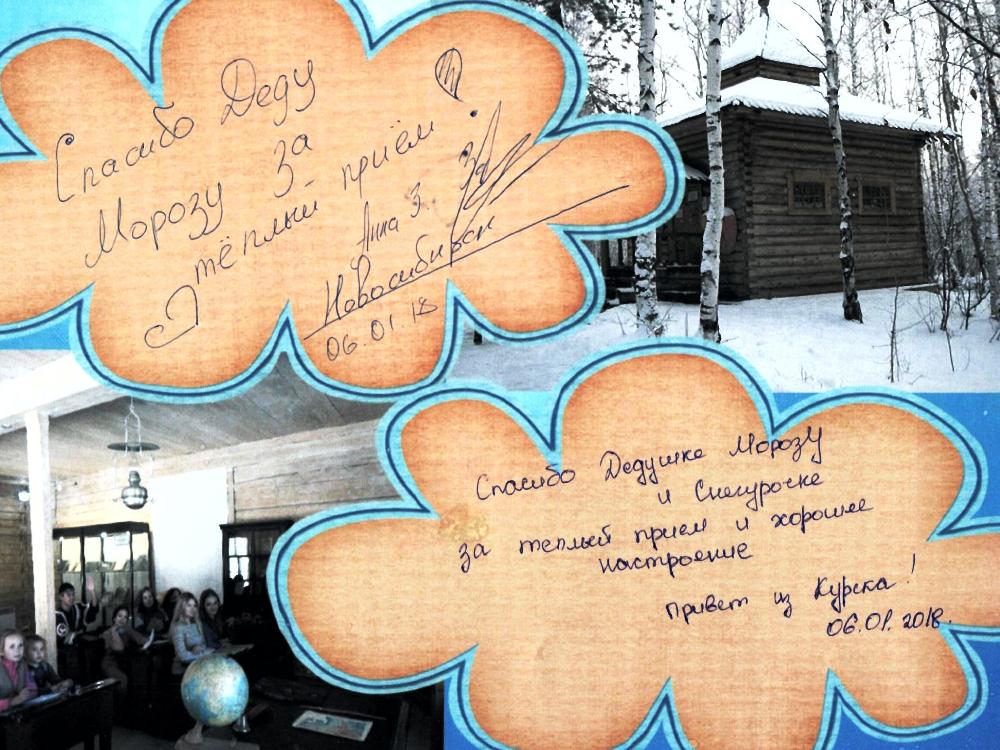 Спасибо Деду
Морозу за
тёплый приём!
Анна З.
Новосибирск
06.01.18
Спасибо Дедушке Морозу
и Снегурочке
за теплый прием и хорошее
настроение
Привет из Курска!
06.01.2018.